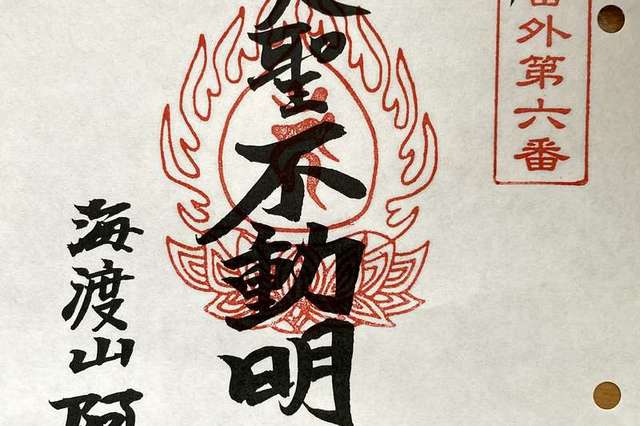 番外第六番
大聖不動明
海渡山阿